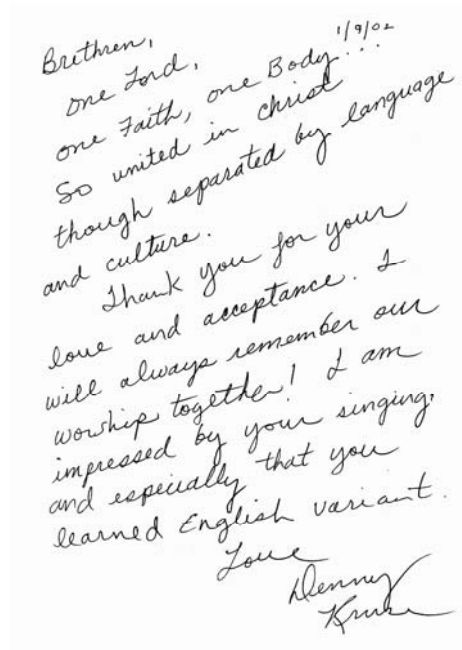 1/9/02
Brethren,
one Lord,
one Faith, one Body...
So united in christ
though separated by language
and culture.
Thank you for your
love and acceptance. I
will always remember our
worship together! I am
impressed by your singing,
and especially that you
learned English variant.
Love
Denny